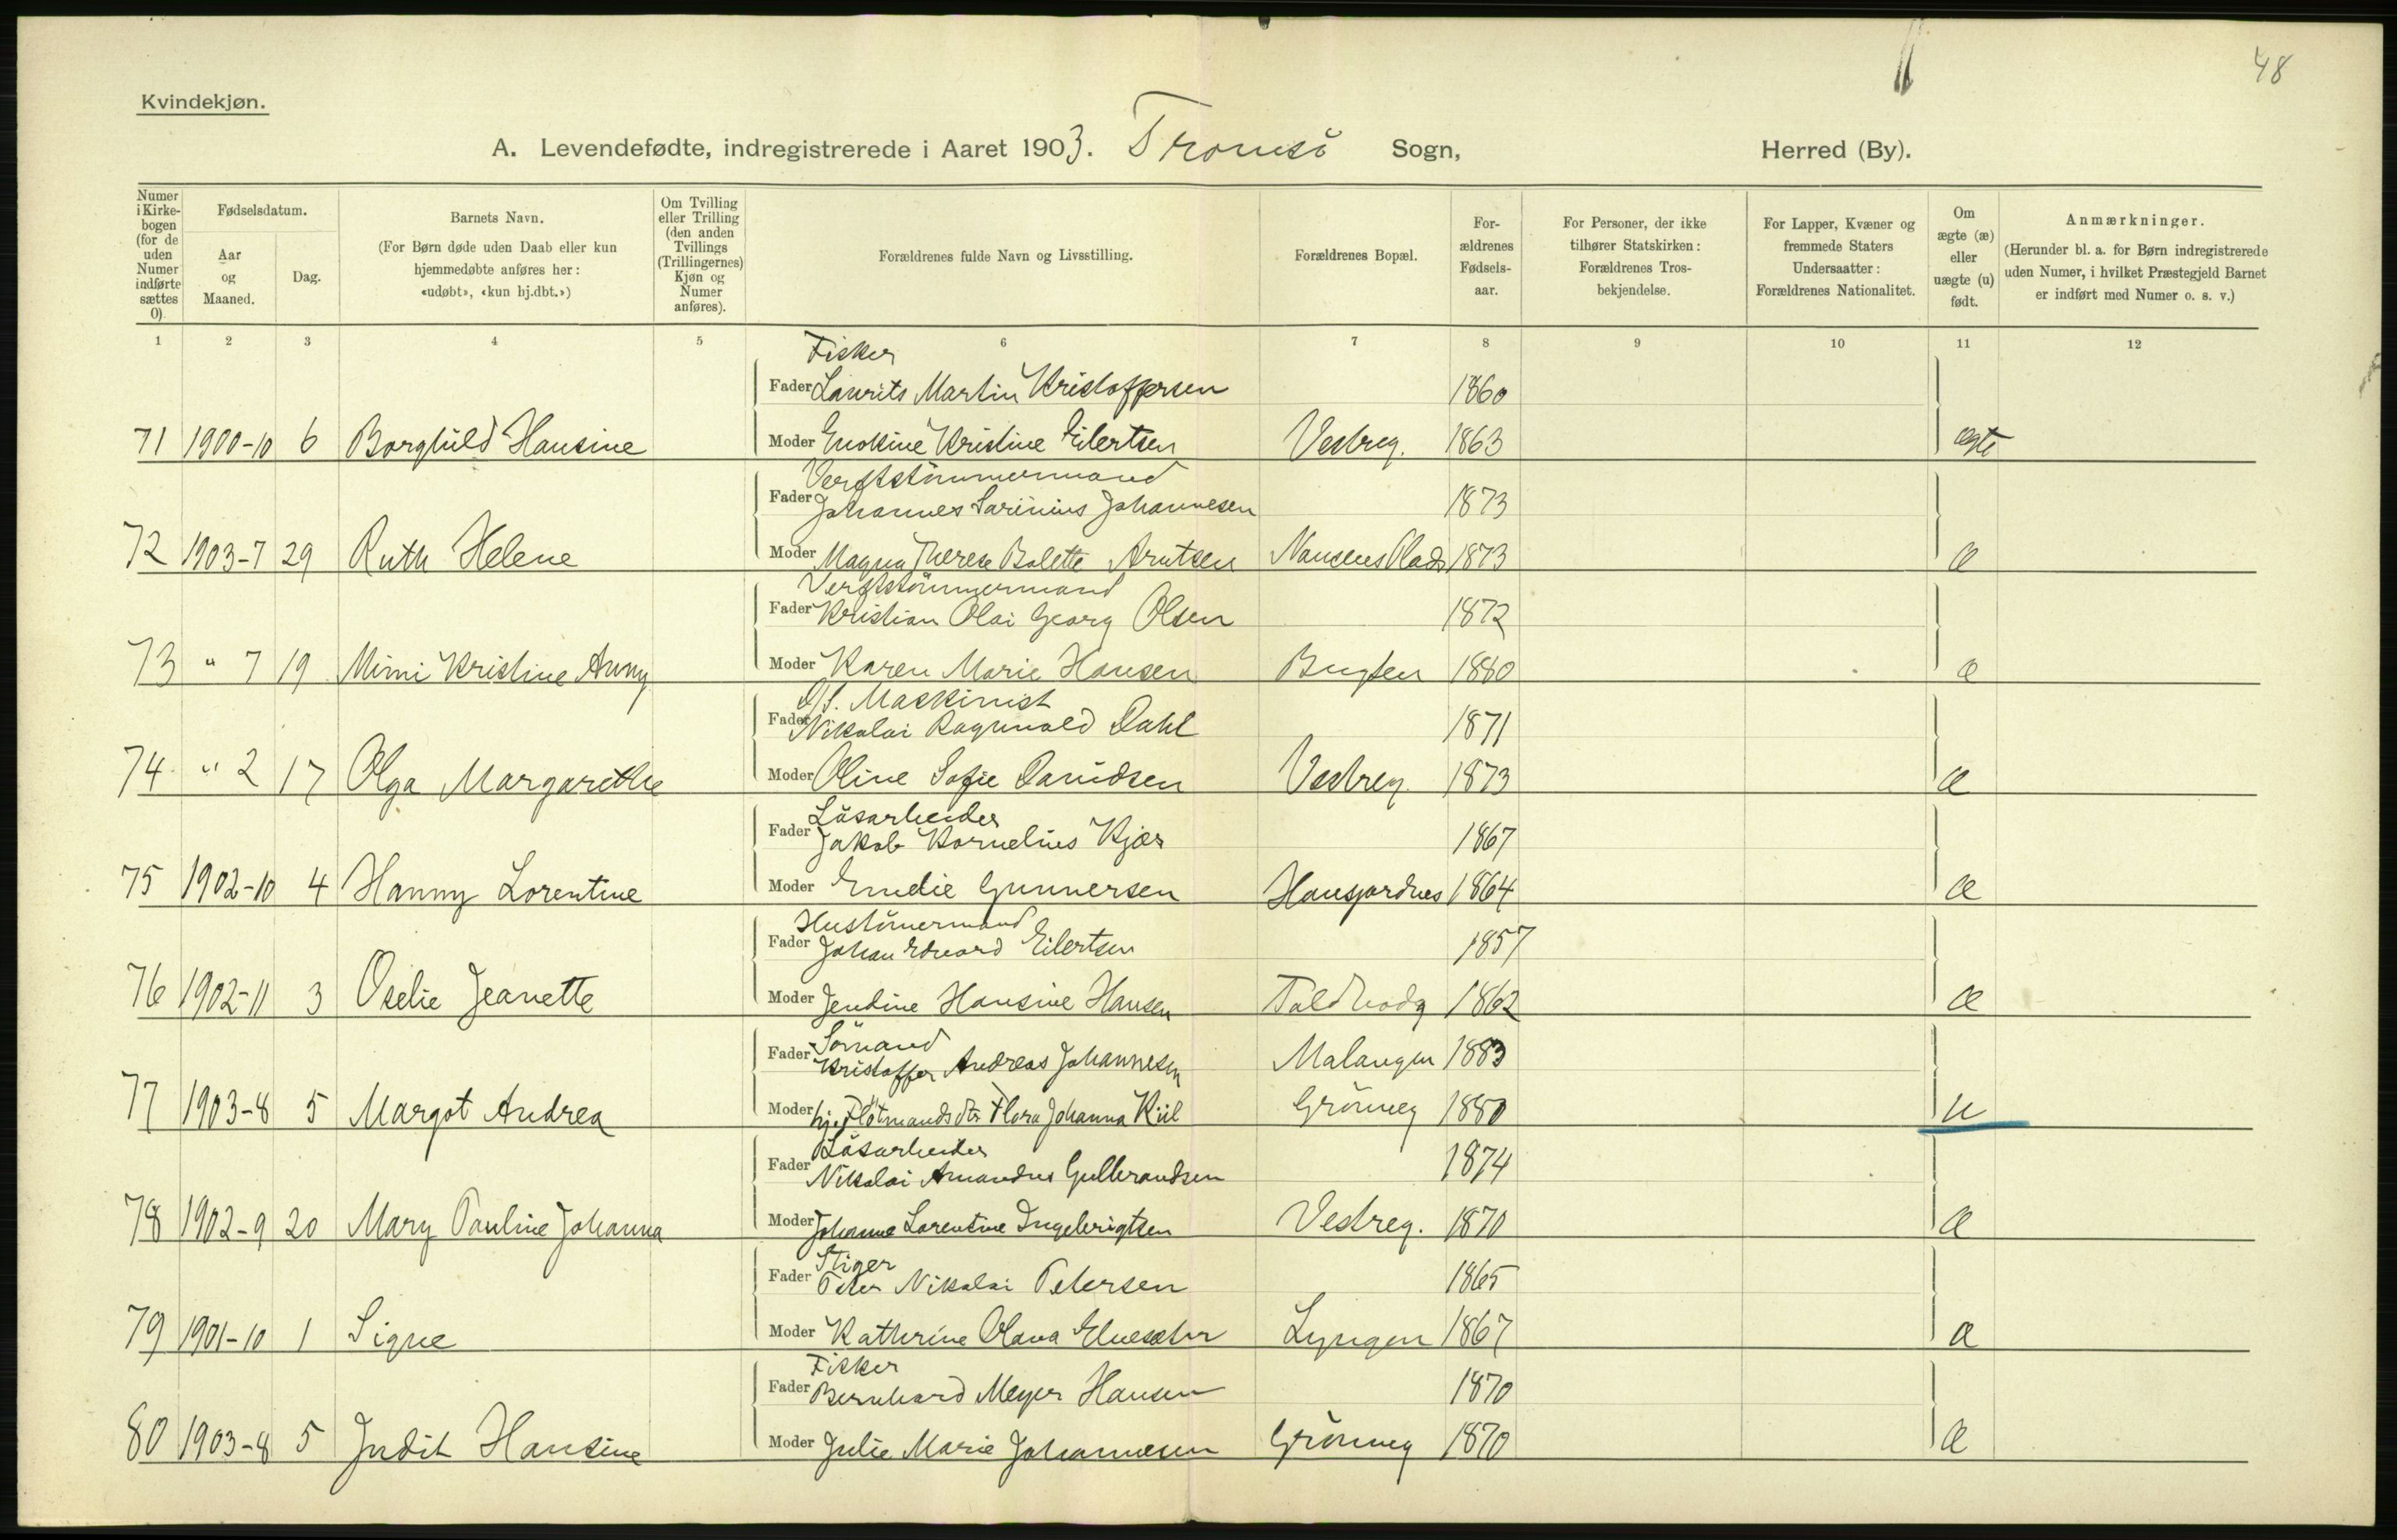 48
Kvindekjøn.
A. Levendefødte, indregistrerede i Aaret 1903. Tromsö Sogn, Herred (By).
Numer i Kirkebogen (for de uden Numer indførte sættes 0).
Fødselsdatum.
Aar og Maaned.
Dag.
Barnets Navn.
(For Børn døde uden Daab eller kun hjemmedøbte anføres her: «udøbt», «kun hj.dbt.»)
Om Tvilling eller Trilling (den anden Tvillings (Trillingernes) Kjøn og Numer anføres).
Forældrenes fulde Navn og Livsstilling.
Forældrenes Bopæl.
Forældrenes Fødselsaar.
For Personer, der ikke tilhører Statskirken: Forældrenes Trosbekjendelse.
For Lapper, Kvæner og fremmede Staters Undersaatter: Forældrenes Nationalitet.
Om ægte (æ) eller uægte (u) født.
Anmærkninger.
(Herunder bl. a. for Børn indregistrerede uden Numer, i hvilket Præstegjeld Barnet er indført med Numer o. s. v.)
1 2 3 4 5 6 7 8 9 10 11 12
Fisker
Fader Laurits Martin Kristoffersen 1860
71 1900-10 6 Borghild Hansine Moder Enokine Kristine Eilertsen Vestreg. 1863 ægte
Verftstömmermand
Fader Johannes Sarinius Johannesen 1873
72 1903-7 29 Ruth Helene Moder Magna Therese Bolette Arntsen Nansens Plads 1873 æ
Verftstömmermand
Fader Kristian Olai Georg Olsen 1872
73 " 7 19 Mimi Kristine Anny Moder Karen Marie Hansen Bugten 1880 æ
D/S. Maskinist
Fader Nikolai Ragnvald Dahl 1871
74 " 2 17 Olga Margarethe Moder Oline Sofie Davidsen Vestreg. 1873 æ
Lösarbeider
Fader Jakob Kornelius Kjær 1867
75 1902-10 4 Hanny Lorentine Moder Emelie Gunnersen Hansjordnes 1864 æ
Hustömermand
Fader Johan Edvard Eilertsen 1857
76 1902-11 3 Oselie Jeanette Moder Jendine Hansine Hansen Toldbodg 1862 æ
Sömand
Fader Kristoffer Andreas Johannesen Malangen 1883
77 1903-8 5 Margot Andrea Moder hj. Flötmands dtr Flora Johanna Kiil Grönneg 1880 u
Lösarbeider
Fader Nikolai Amandus Gulbrandsen 1874
78 1902-9 20 Mary Pauline Johanna Moder Johanne Lorentine Ingebrigtsen Vestreg. 1870 æ
Stiger
Fader Peter Nikolai Petersen 1865
79 1901-10 1 Signe Moder Kathrine Olava Lyngen 1867 æ
Fisker
Fader Bernhard Meyer Hansen 1870
80 1903-8 5 Judit Hansine Moder Julie Marie Johannesen Grönneg 1870 æ